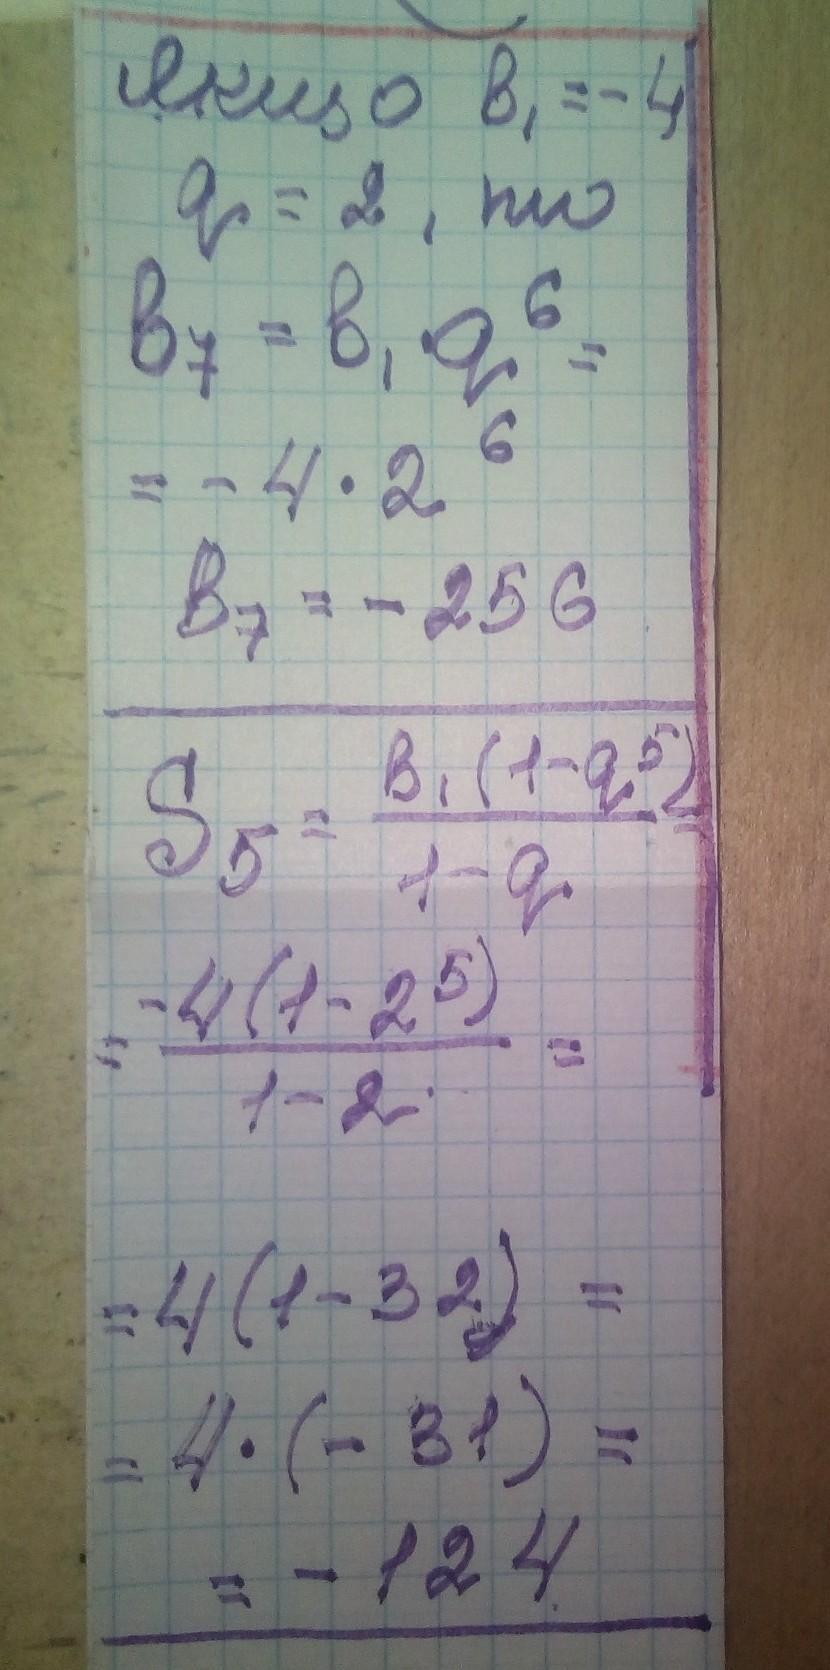 Якщо в₁ = -4
q = 2, то
в₇ = в₁ · q⁶ =
= - 4 · 2⁶
в₇ = - 256
S₅ = в₁(1-q⁵)/(1-q) =
= -4(1-2⁵)/(1-2) =
= 4(1-32) =
= 4·(-31) =
= - 124